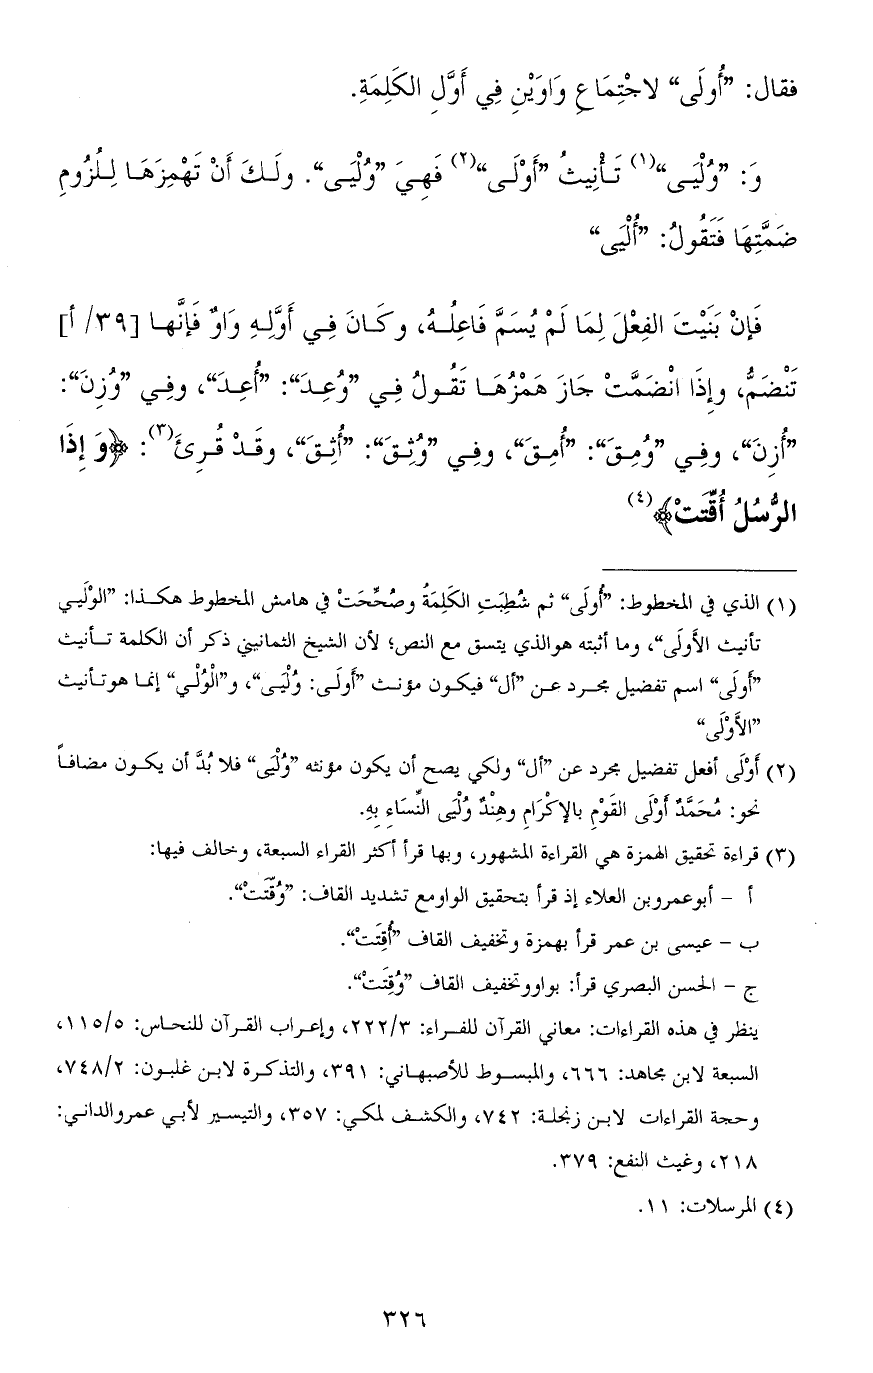 فقال: ”أُولَى“ لاجْتِمَاعِ وَاوَيْنِ فِي أَوَّلِ الكَلِمَةِ.
وَ: ”وُلْيَى“(١) تَأْنِيثُ ”أَوْلَى“(٢) فَهِيَ ”وُلْيَى“. ولَكَ أَنْ تَهْمِزَهَا لِلُزُومِ
ضَمَّتِهَا فَتَقُولُ: ”أُلْيَى“
فَإِنْ بَنَيْتَ الفِعْلَ لِمَا لَمْ يُسَمَّ فَاعِلُهُ، وكَانَ فِي أَوَّلِهِ وَاوٌ فَإِنَّها [٣٩/ أ]
تَنْضَمُّ، وإِذَا انْضَمَّتْ جَازَ هَمْزُهَا تَقُولُ فِي ”وُعِدَ“: ”أُعِدَ“، وفِي ”وُزِنَ“:
”أُزِنَ“، وفِي ”وُمِقَ“: ”أُمِقَ“، وفِي ”وُثِقَ“: ”أُثِقَ“، وقَدْ قُرِئَ(٣): ﴿وَ إِذَا
الرُّسُلُ أُقِّتَتْ﴾(٤)
(١) الذي في المخطوط: ”أُولَى“ ثم شُطِبَتِ الكَلِمَةُ وصُحِّحَتْ في هامش المخطوط هكذا: ”الوُلْيي
تأنيث الأَولَى“، وما أثبته هوالذي يتسق مع النص؛ لأن الشيخ الثمانيني ذكر أن الكلمة تأنيث
”أولَى“ اسم تفضيل مجرد عن ”أل“ فيكون مؤنث ”أَولَى: وُلْيَى“، و”الْوُلْي“ إنما هوتأنيث
”الأَوْلَى“
(٢) أَوْلَى أفعل تفضيل مجرد عن ”أل“ ولكي يصح أن يكون مؤنثه ”وُلْيَى“ فلا بُدَّ أن يكون مضافاً
نحو: مُحَمَّدٌ أَوْلَى القَوْمِ بالإِكْرَامِ وهِنْدٌ وُلْيَى النِّسَاءِ بِهِ.
(٣) قراءة تحقيق الهمزة هي القراءة المشهور، وبها قرأ أكثر القراء السبعة، وخالف فيها:
أ - أبوعمروبن العلاء إذ قرأ بتحقيق الواومع تشديد القاف: ”وُقِّتَتْ“.
ب - عيسى بن عمر قرأ بهمزة وتخفيف القاف ”أُقِتَتْ“.
ج - الحسن البصري قرأ: بواووتخفيف القاف ”وُقِتَتْ“.
ينظر في هذه القراءات: معاني القرآن للفراء: ٢٢٢/٣، وإعراب القرآن للنحاس: ١١٥/٥،
السبعة لابن مجاهد: ٦٦٦، والمبسوط للأصبهاني: ٣٩١، والتذكرة لابن غلبون: ٧٤٨/٢،
وحجة القراءات لابن زنجلة: ٧٤٢، والكشف لمكي: ٣٥٧، والتيسير لأبي عمروالداني:
٢١٨، وغيث النفع: ٣٧٩.
(٤) المرسلات: ١١.
٣٢٦